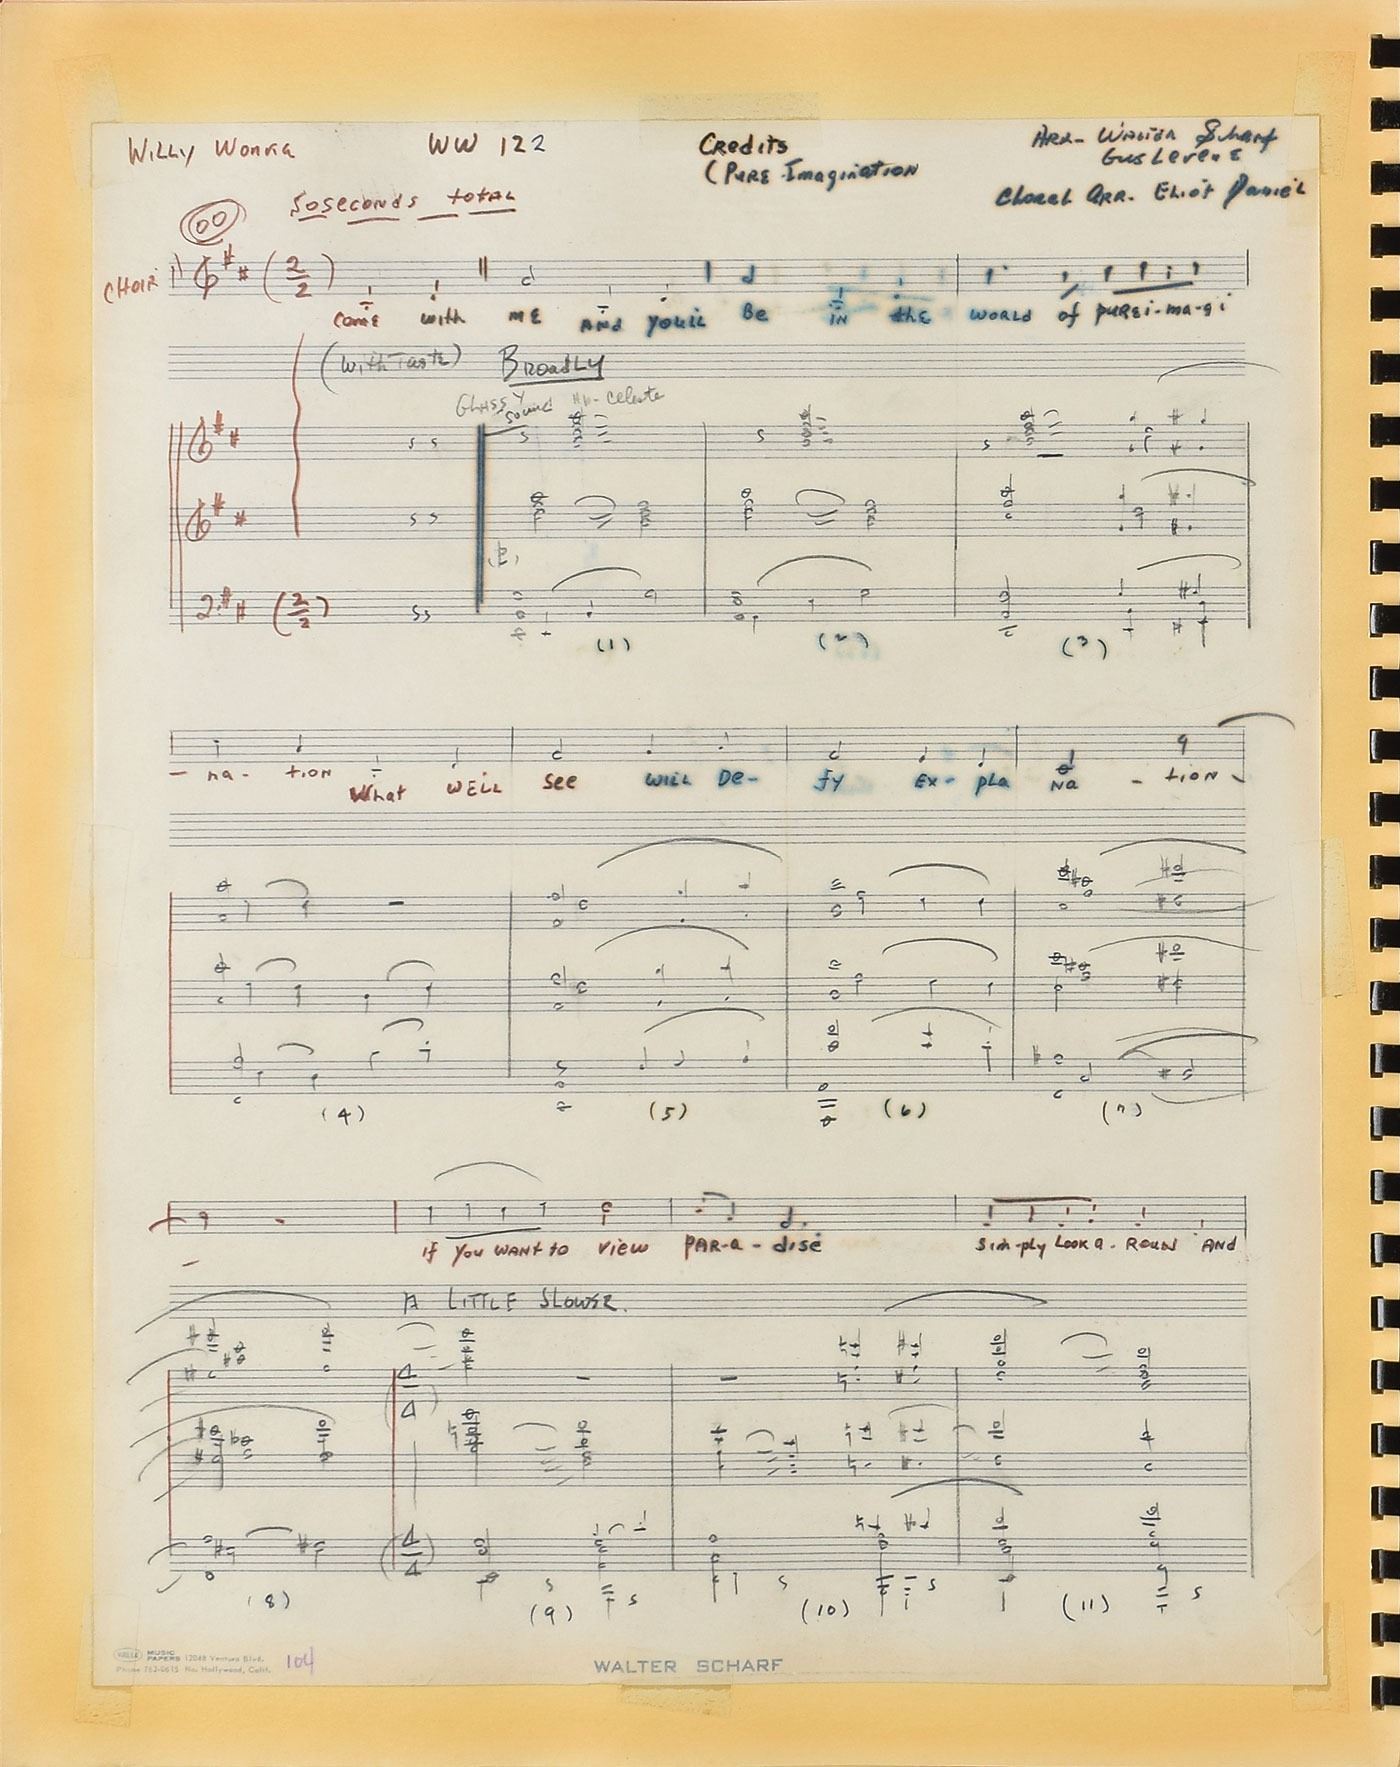 Willy Wonka WW 122 Credits Arr- Walter Scharf
(Pure Imagination Gus Levene
50 seconds total Choral Arr. Eliot Daniel
00
Choir (2/2)
Come with me and you'll Be in the world of pure i-ma-gi
(With Taste) Broadly
Glassy sound Hp- Celeste
(2/2)
(1) (2) (3)
- na- tion What we'll see will De- fy Ex- pla na - tion -
(4) (5) (6) (7)
If you want to view par-a-dise Simply Look a-Round And
A Little Slower.
4/4
(4/4)
(8) (9) (10) (11)
VALLE MUSIC PAPERS 12048 Ventura Blvd.
Phone 762-0615 No. Hollywood, Calif. 104
WALTER SCHARF